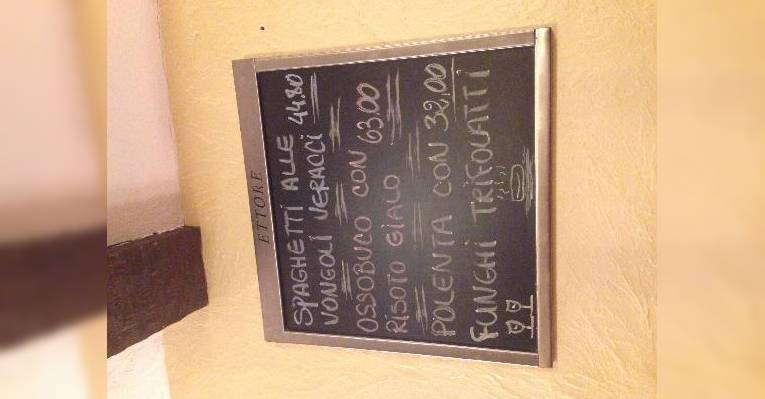 ETTORE
SPAGHETTI ALLE
VONGOLI VERACCI 44.80
OSSOBUCO CON 63,00
RISOTO GIALO
POLENTA CON 32,00
FUNGHI TRIFOLATTI